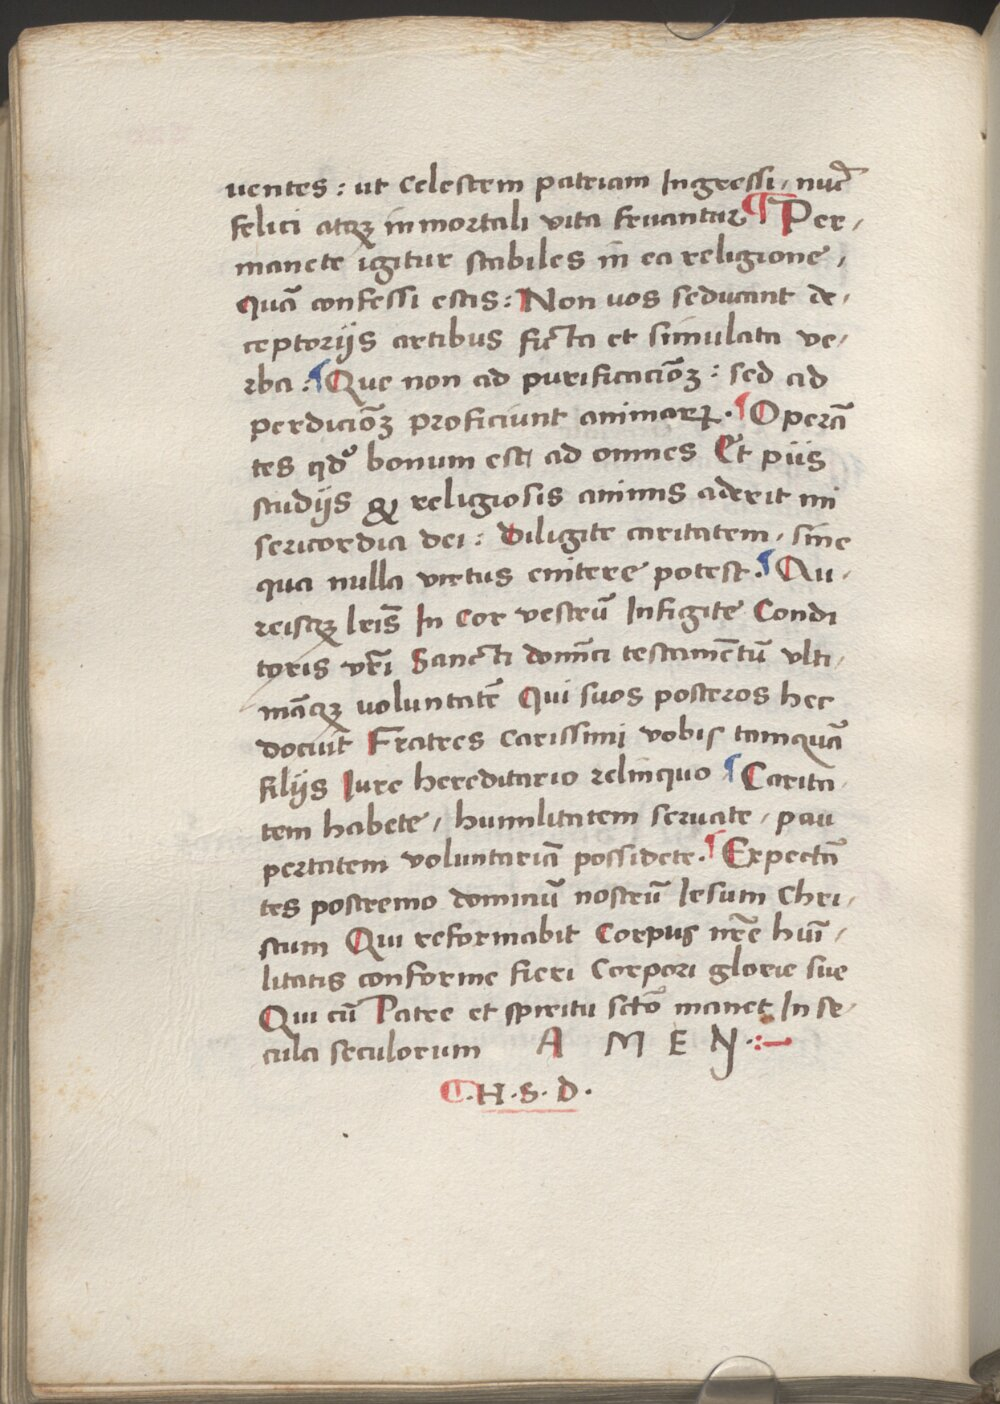 uentes : ut celestem patriam Ingressi, nuc̄
felici atqꝫ inmortali vita fruantur ¶ Per,
manete igitur stabiles in ea religione,
Quā confessi estis: Non vos seducant de,
ceptoriis artibus ficta et simulata ve,
rba : ¶ Que non ad purificaciōꝫ : sed ad
perdiciōꝫ proficiunt animaꝝ. ¶ Operā
tes qdº bonum est, ad omnes Et piis
studijs & religiosis animis aderit mi
sericordia dei : Diligite caritatem, sine
qua nulla virtus enitere potest. ¶ Au,
reisqꝫ lr̄is In Cor vestrū Infigite Condi
toris vr̄i Sancti domīci testamētū vlti,
māqꝫ voluntatē Qui suos posteros hec
docuit Fratres carissimi vobis tamquā
filijs Iure hereditario relinquo ¶ Carita,
tem habete, humilitatem seruate, pau
pertatem voluntariā possidete. ¶ Expectā
tes postremo dominū nostrū Iesum Chri,
stum Qui reformabit Corpus nr̄e huī,
litatis conforme fieri Corpori glorie sue
Qui cū Patre et spiritu sctō manet In se,
cula seculorum A M E N :~
¶ .H.S.D.